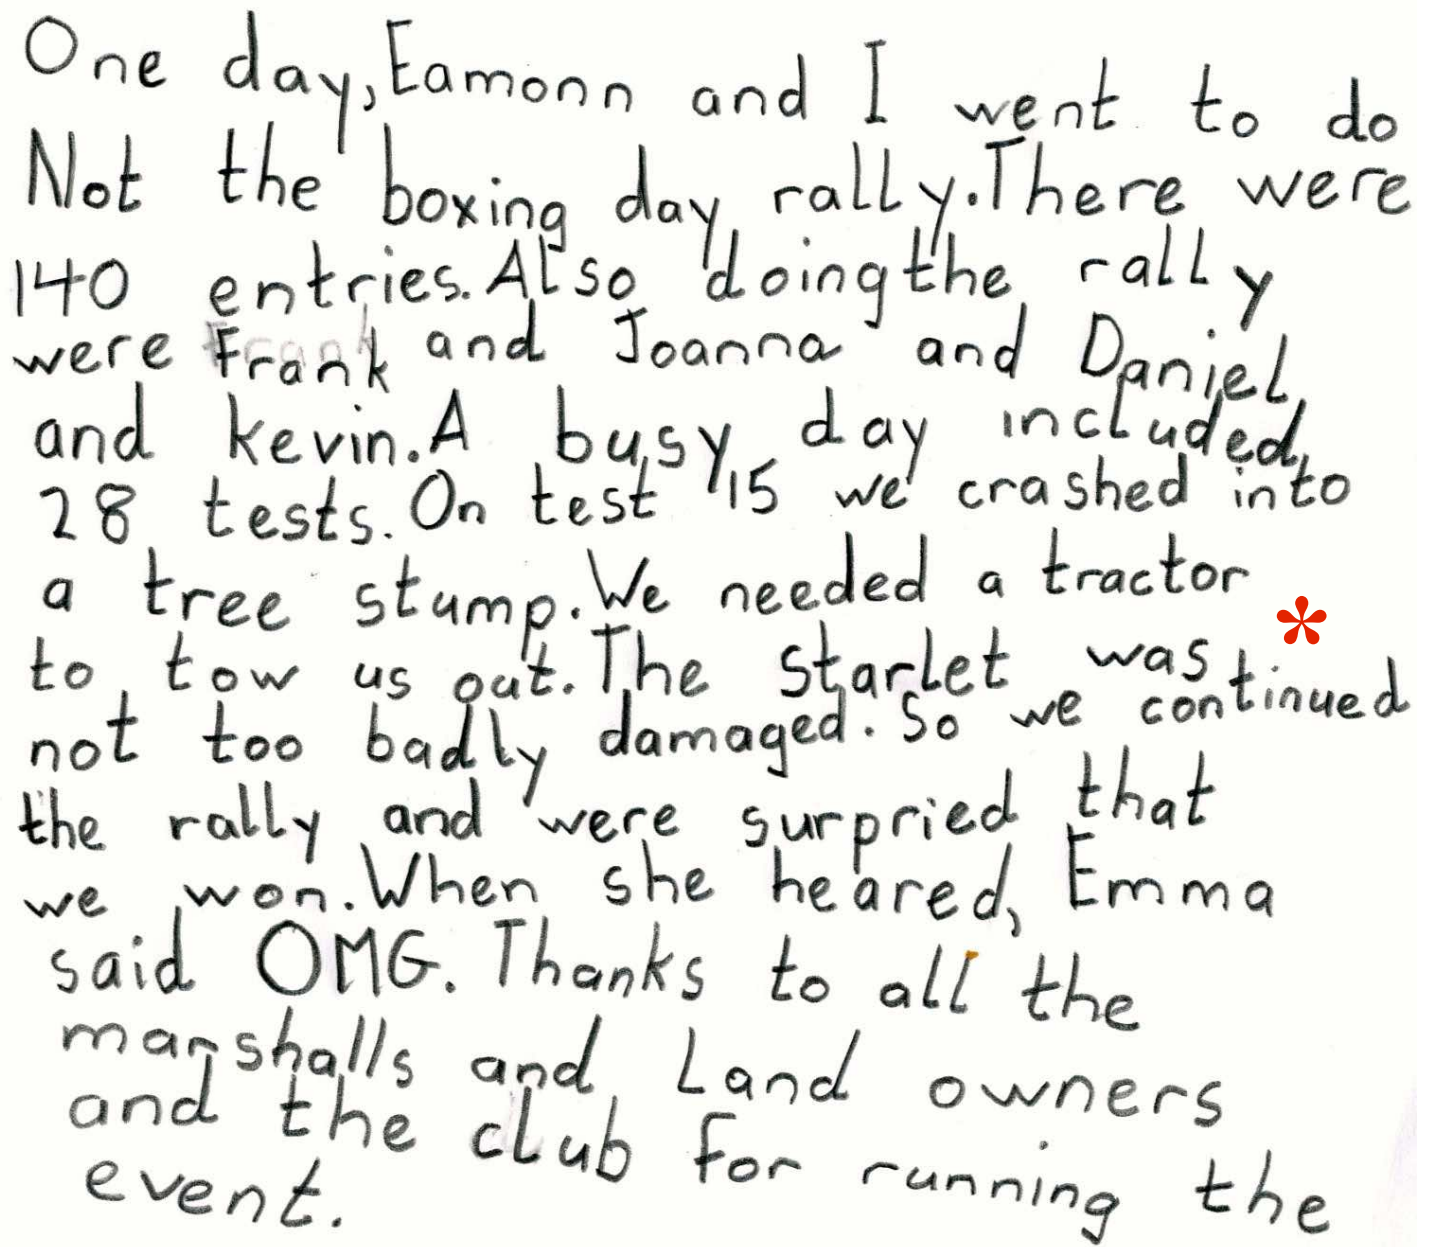 One day, Eamonn and I went to do
Not the boxing day rally. There were
140 entries. Also doing the rally
were Frank and Joanna and Daniel
and kevin. A busy day included
28 tests. On test 15 we crashed into
a tree stump. We needed a tractor
to tow us out. The Starlet was *
not too badly damaged. So we continued
the rally and were surpried that
we won. When she heared, Emma
said OMG. Thanks to all the
marshalls and Land owners
and the club for running the
event.